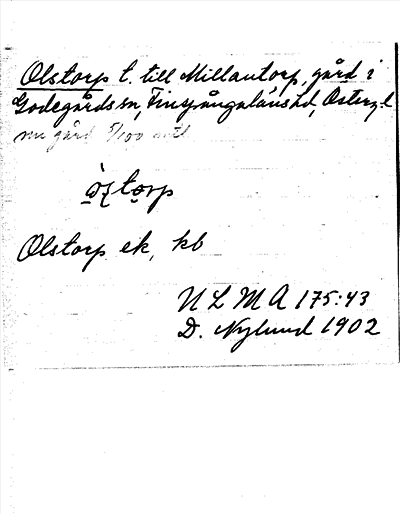 Olstorp t. till Millantorp, gård i
Godegårds sn, Finspångaläns hd, Österg. l
nu gård 5/100 mtl
torp
Olstorp ek, kb
U L M A 175:43
D. Nylund 1902